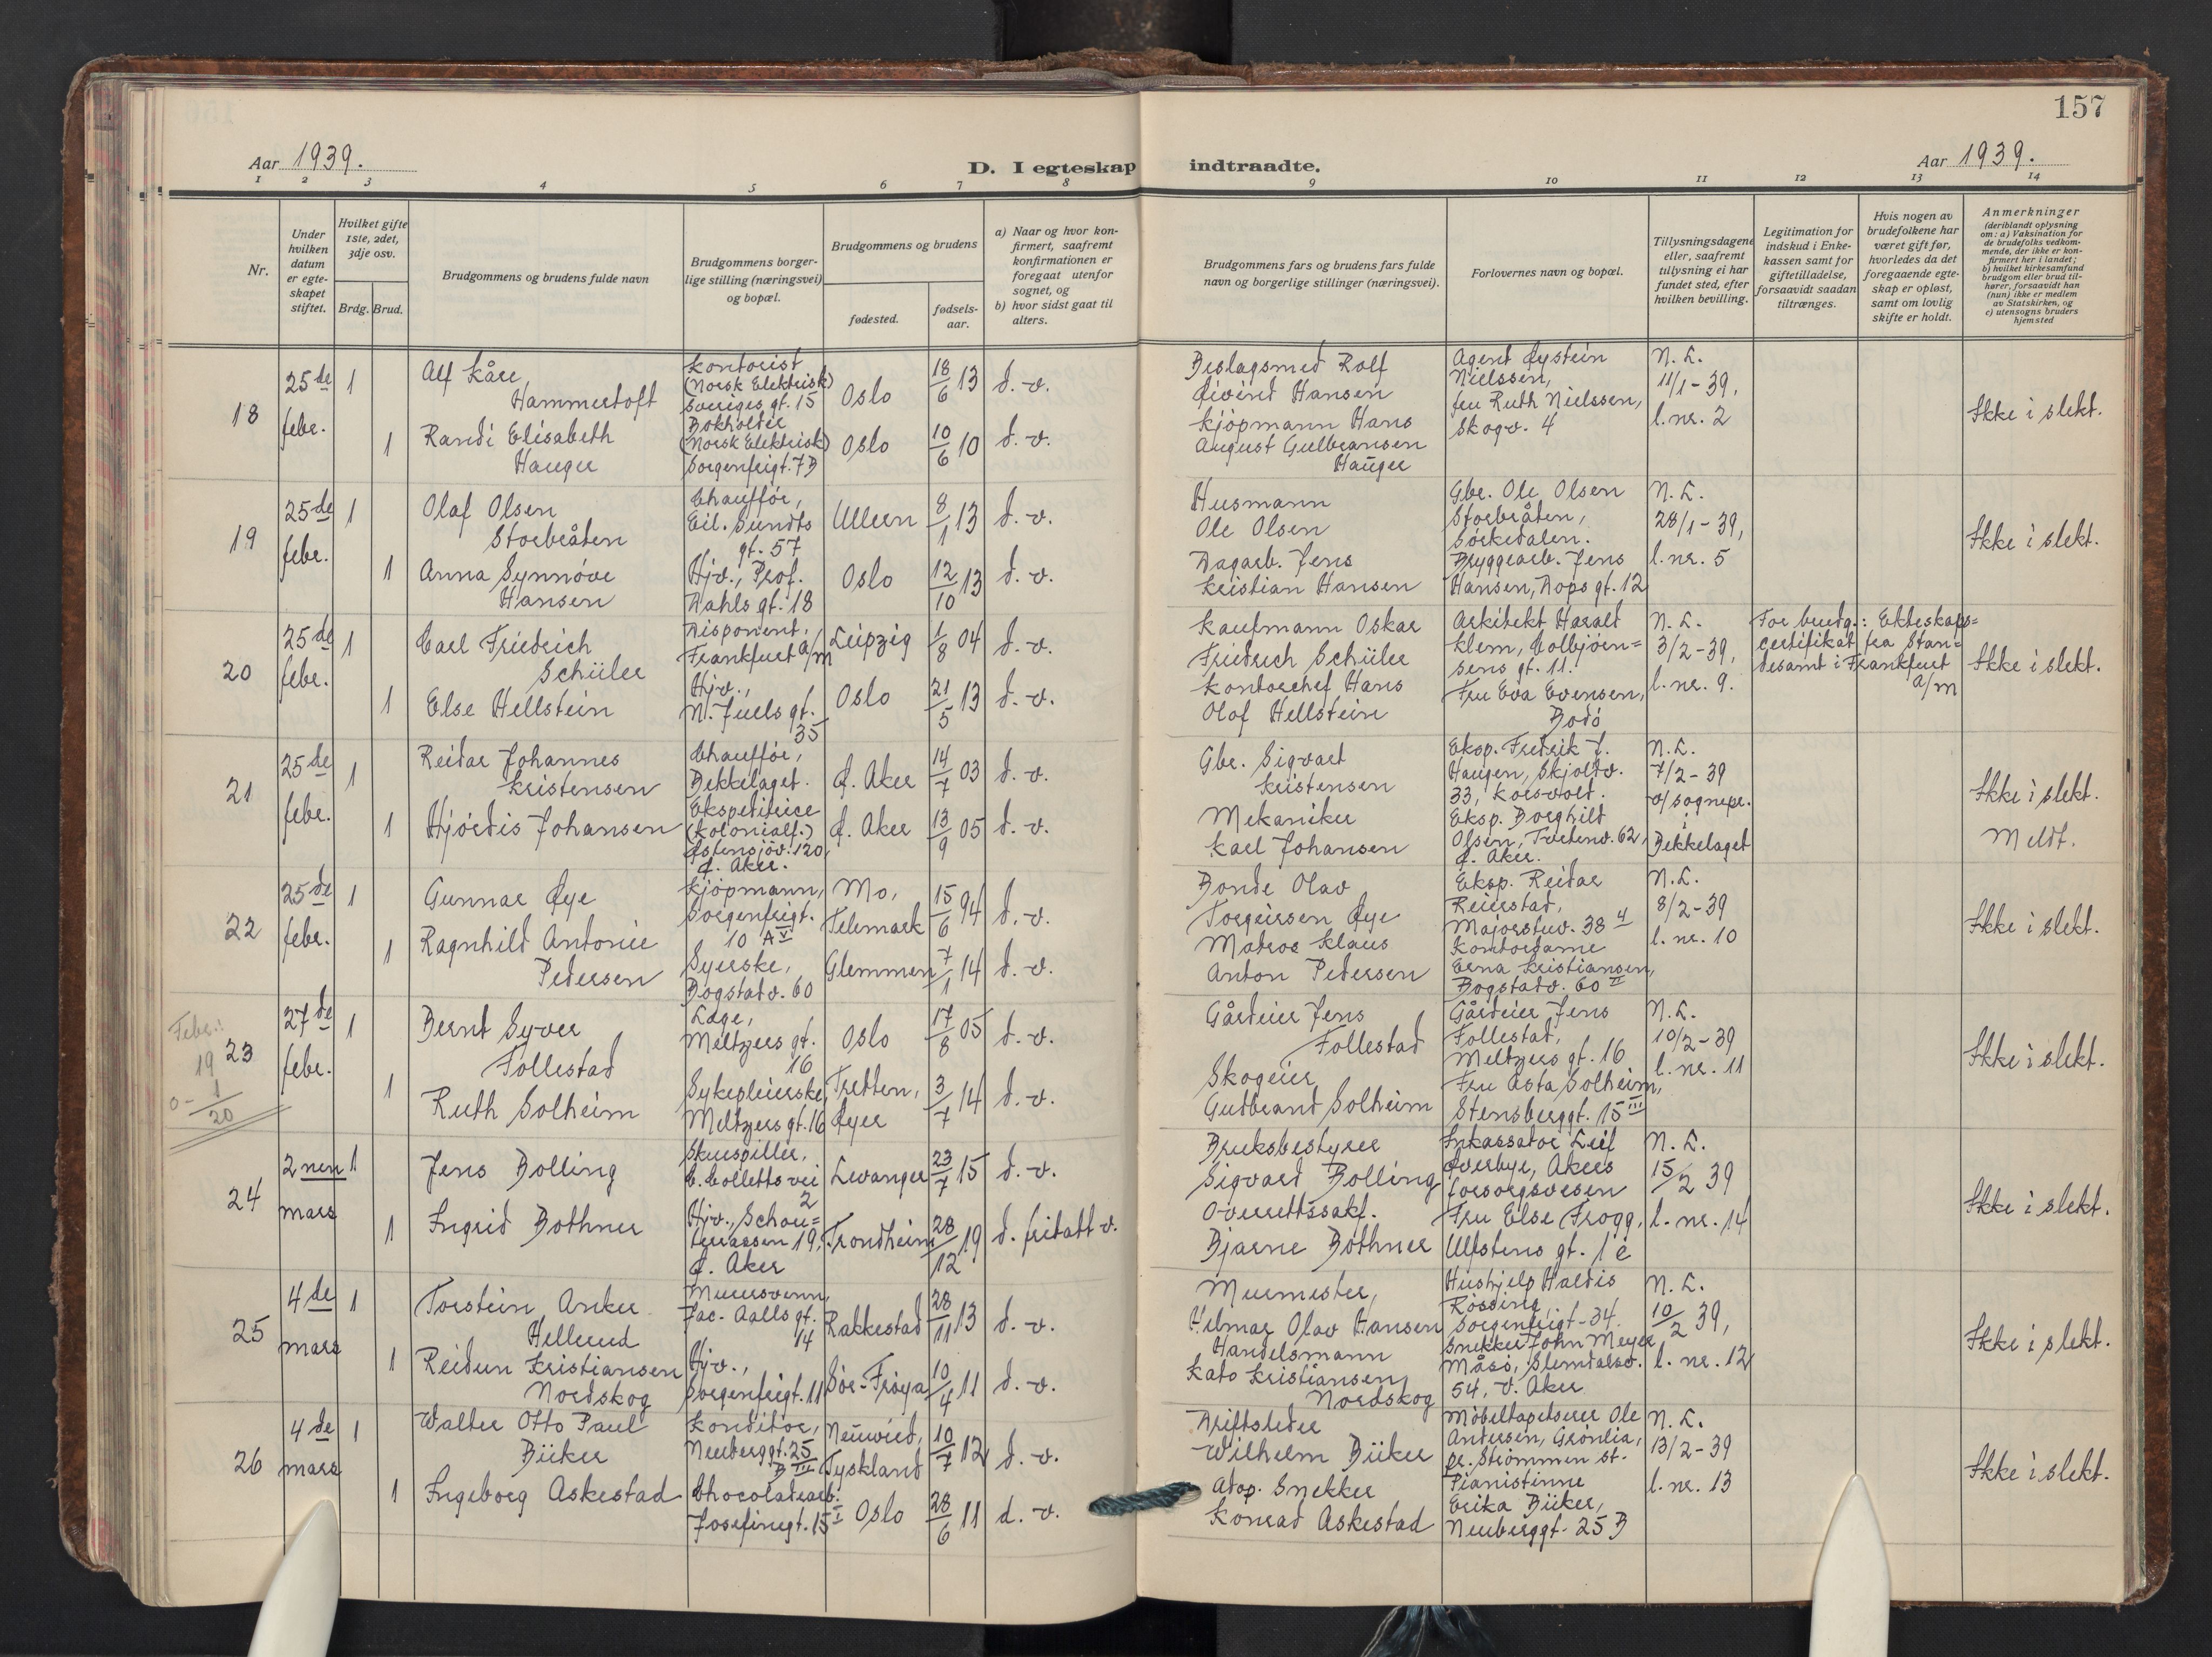 157
Aar 1939.
D. I egteskap indtraadte.
Aar 1939.
1 2 3 4 5 6 7 8 9 10 11 12 13 14
Nr.
Under hvilken datum er egteskapet stiftet.
Hvilket gifte 1ste, 2det, 3dje osv.
Brdg. Brud.
Brudgommens og brudens fulde navn
Brudgommens borgerlige stilling (næringsvei) og bopæl.
Brudgommens og brudens
fødested.
fødselsaar.
a) Naar og hvor konfirmert, saafremt konfirmationen er foregaat utenfor sognet, og
b) hvor sidst gaat til alters.
Brudgommens fars og brudens fars fulde navn og borgerlige stillinger (næringsvei).
Forlovernes navn og bopæl.
Tillysningsdagene eller, saafremt tillysning ei har fundet sted, efter hvilken bevilling.
Legitimation for indskud i Enkekassen samt for giftetilladelse, forsaavidt saadan tiltrænges.
Hvis nogen av brudefolkene har været gift før, hvorledes da det foregaaende egteskap er opløst, samt om lovlig skifte er holdt.
Anmerkninger
(deriblandt oplysning om: a) Vaksination for de brudefolks vedkommende, der ikke er konfirmert her i landet; b) hvilket kirkesamfund brudgom eller brud tilhører, forsaavidt han (hun) ikke er medlem av Statskirken, og c) utensogns bruders hjemsted
18
25de febr.
1
Alf Kåre Hammertoft
Kontorist (Norsk Elektrisk) Sveriges gt. 15
Oslo
18/6 13
d. v.
Beslagsmed Rolf Øivind Hansen
Agent Øystein Nielssen,
fru Ruth Nielssen, Skogv. 4
N. L. 11/1-39, l. nr. 2
Ikke i slekt.
1
Randi Elisabeth Hauger
Bokholder (Norsk Elektrisk) Sorgenfrigt. 7B
Oslo
10/6 10
d. v.
Kjøpmann Hans August Gulbransen Hauger
19
25de febr.
1
Olaf Olsen Storbråten
Chauffør, Eil. Sundts gt. 57
Ullern
8/1 13
d. v.
Husmann Ole Olsen
Gbr. Ole Olsen Storbråten, Sørkedalen.
N. L. 28/1-39, l. nr. 5
Ikke i slekt.
1
Anna Synnøve Hansen
Hjv., Prof. Dahls gt. 18
Oslo
12/10 13
d. v.
Dagarb. Jens Kristian Hansen
Bryggearb. Jens Hansen, Dops gt. 12
20
25de febr.
1
Carl Friedrich Schüler
Disponent, Frankfurt a/m
Leipzig
1/8 04
d. v.
Kaufmann Oskar Friedrich Schüler
Arkitekt Harald Klem, Colbjørn=sens gt. 11.
N. L. 3/2-39, l. nr. 9.
For brudg.: Ekteskaps=certifikat fra Stan=desamt i Frankfurt a/m
Ikke i slekt.
1
Else Hellstein
Hjv., N. Juels gt. 35
Oslo
21/5 13
d. v.
Kontorchef Hans Olof Hellstein
Fru Eva Evensen, Bodø
21
25de febr.
1
Reidar Johannes Kristensen
Chauffør, Bekkelaget.
Ø. Aker
14/7 03
d. v.
Gbr. Sigvart Kristensen
Eksp. Fredrik J. Haugen, Skjoldv. 33, Korsvold.
N. L. 7/2-39 v/sognepr. i Bekkelaget
Ikke i slekt.
Meldt.
1
Hjørdis Johansen
Ekspeditrice (Kolonialf.) Østensjøv. 120, Ø. Aker.
Ø. Aker
13/9 05
d. v.
Mekaniker Karl Johansen
Eksp. Borghild Olsen, Tvetenv. 62, Ø. Aker.
22
25de febr.
1
Gunnar Øye
Kjøpmann, Sorgenfrigt. 10 A V
Mo, Telemark
15/6 94
d. v.
Bonde Olav Torgeirssen Øye
Eksp. Reidar Reierstad, Majorstuv. 38 4
N. L. 8/2-39 l. nr. 10
Ikke i slekt.
1
Ragnhild Antonie Pedersen
Syerske, Bogstadv. 60
Glemmen
7/1 14
d. v.
Matros Klaus Anton Pedersen
Kontordame Erna Kristiansen, Bogstadv. 60 II
Febr.:
19
0 - 1/20
23
27de febr.
1
Bernt Syver Follestad
Læge, Meltzers gt. 16
Oslo
17/8 05
d. v.
Gårdeier Jens Follestad
Gårdeier Jens Follestad, Meltzers gt. 16
N. L. 10/2-39 l. nr. 11
Ikke i slekt.
1
Ruth Solheim
Sykepleierske, Meltzers gt. 16
Tretten, Øyer
3/7 14
d. v.
Skogeier Gudbrand Solheim
Fru Asta Solheim, Stensberggt. 15 III
24
2nen mars
1
Jens Bolling
Skuespiller, C. Colletts vei 2
Levanger
23/7 15
d. v.
Bruksbestyrer Sigvard Bolling
Inkassator Leif Øverbye, Akers forsorgsvesen
N. L. 15/2 39 l. nr. 14
Ikke i slekt.
1
Ingrid Bothner
Hjv., Schou=terrassen 19, Ø. Aker
Trondheim
28/12 19
d. fritatt v.
Overrettssakf. Bjarne Bothner
Fru Else Frogg, Ulfstens gt. 1 c
25
4de mars
1
Torstein Anker Hellerud
Murersvenn, Jac. Aalls gt. 14
Rakkestad
28/11 13
d. v.
Murmester, Hilmar Olav Hansen
Hushjelp Haldis Rossing, Sorgenfrigt. 34.
N. L. 10/2 39, l. nr. 12
Ikke i slekt.
1
Reidun Kristiansen Nordskog
Hjv., Sorgenfrigt. 11
Sør-Frøya
10/4 11
d. v.
Handelsmann Kato Kristiansen Nordskog
Snekker John Meyer Måsø, Slemdalsv. 54, V. Aker
26
4de mars
1
Walter Otto Paul Büker
Konditor, Neuberggt. 25 B III
Neuwied, Tyskland
10/7 12
d. v.
Driftsleder Wilhelm Büker
Møbeltapetserer Ole Andersen, Grønlia, pr. Strømmen st.
N. L. 13/2-39 l. nr. 13
Ikke i slekt.
1
Ingeborg Askestad
Chocoladearb. Josefinegt. 15 I
Oslo
28/6 11
d. v.
Adop. Snekker Konrad Askestad
Pianistinne Erika Büker, Neuberggt. 25 B